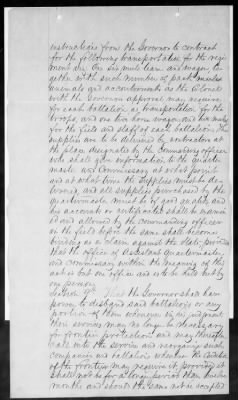 instructions from the Governor to contract
for the following transportation for the regi
ment viz. One six mule team and wagon to
gether with such number of pack mules
animals and accoutrements as the Colonel
with the Governor approval may require
for each battalion as transportation for the
troops, and one two horse wagon and two mules
for the field and staff of each battalion, the
supplies are to be delivered by contractors at
the place designated by the Commanding officer
who shall give information to the quarter
master and Commissary at what point
and at what time the supplies must be de
livered, and all supplies purchased by the
quartermaster must be of good quality and
his accounts or certificates shall be examin
ed and allowed by the commanding officer
in the field before the same shall become
binding as a claim against the state, provided
that the office of assistant quartermaster
and commissary within the meaning of this
act is but one office and is to be held but by
one person
Section 9 That the Governor shall have
power to disband said battalions or any
portion of them whenever in his judgment
their services may no longer be necessary
for frontier protection and may
call into the service and reorganize such
companies and battalions whenever the condition
of the frontier may require it, provided it
shall not be for a longer period than twelve
months and should the same not be accepted